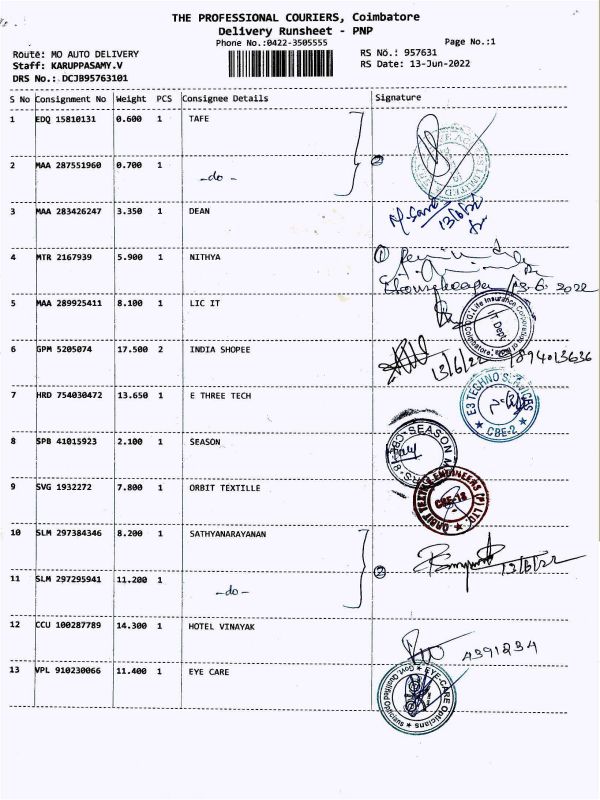 THE PROFESSIONAL COURIERS, Coimbatore
Delivery Runsheet - PNP
Phone No.:0422-3505555
Page No.:1
Route: MO AUTO DELIVERY
RS No.: 957631
Staff: KARUPPASAMY.V
RS Date: 13-Jun-2022
DRS No.: DCJB95763101
S No Consignment No Weight PCS Consignee Details Signature
1 EDQ 15810131 0.600 1 TAFE
2 MAA 287551960 0.700 1 -do- 2
3 MAA 283426247 3.350 1 DEAN 13/6/22
4 MTR 2167939 5.900 1 NITHYA 1
13.6.2022
5 MAA 289925411 8.100 1 LIC IT
Life Insurance Corporation of
IT Dept
6 GPM 5205074 17.500 2 INDIA SHOPEE 13/6/22
7 HRD 754030472 13.650 1 E THREE TECH
E3 TECHNO SERVICES
CBE-2
8 SPB 41015923 2.100 1 SEASON
SEASON
9 SVG 1932272 7.800 1 ORBIT TEXTILLE
CBE-18
10 SLM 297384346 8.200 1 SATHYANARAYANAN
13/6/22
11 SLM 297295941 11.200 1 -do- 2
12 CCU 100287789 14.300 1 HOTEL VINAYAK
4391234
13 VPL 910230066 11.400 1 EYE CARE
EYE-CARE Opticians
Govt Qualified Opticians